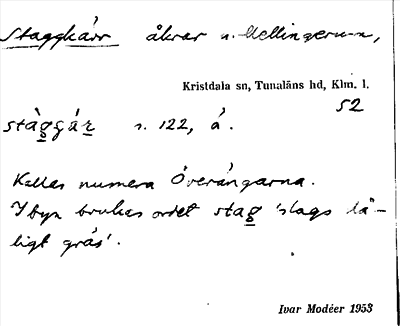 Staggkärr åkrar u. Mellingerum,
Kristdala sn, Tunaläns hd, Klm. l.
52
stàgçä́r s. 122, å.
Kallas numera Överängarna.
I byn brukas ordet stag 'slags då-
ligt gräs'.
Ivar Modéer 1953